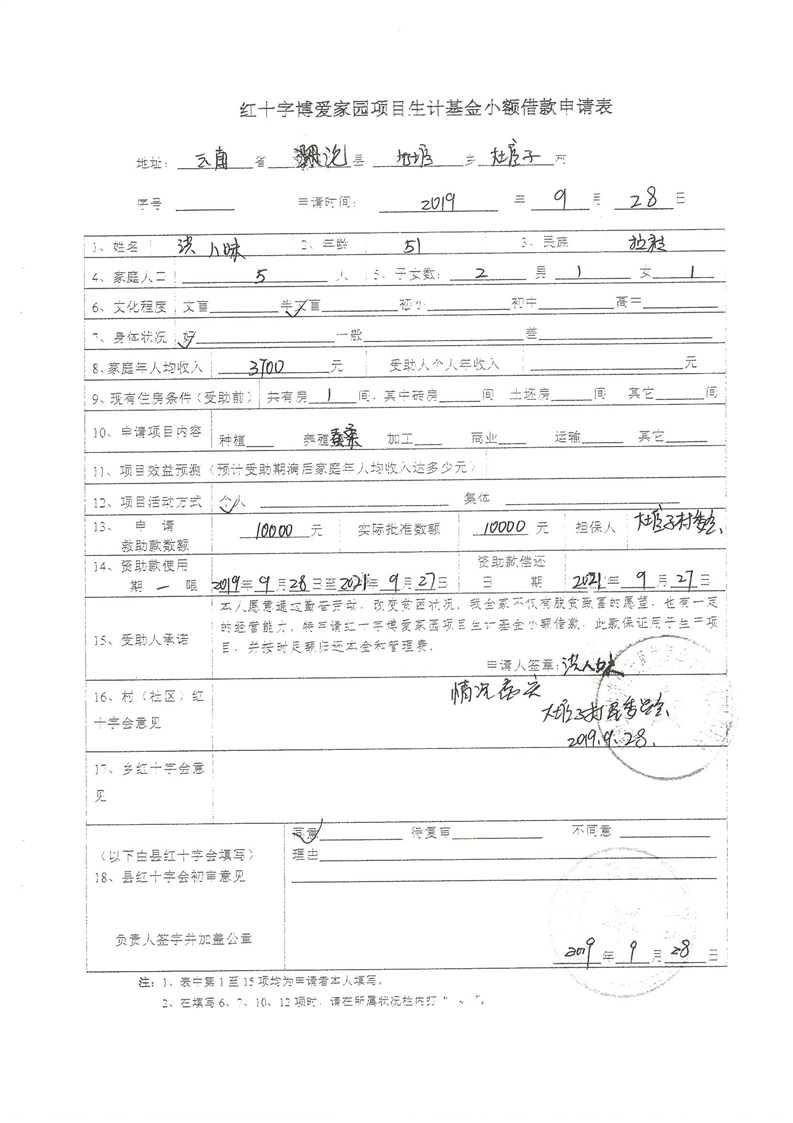 红十字博爱家园项目生计基金小额借款申请表
地址: 云南 省 县 乡 村
序号 申请时间: 2019 年 9 月 28 日
1、姓名 2、年龄 51 3、民族 拉祜
4、家庭人口 5 人 5、子女数: 2 男 1 女 1
6、文化程度 文盲 半文盲 初小 初中 高中
7、身体状况 好 一般 差
8、家庭年人均收入 3700 元 受助人个人年收入 元
9、现有住房条件(受助前) 共有房 1 间,其中砖房 间 土坯房 间 其它 间
10、申请项目内容 种植 养殖 加工 商业 运输 其它
11、项目效益预测(预计受助期满后家庭年人均收入达多少元)
12、项目活动方式 个人 集体
13、申请救助款数额 10000 元 实际批准数额 10000 元 担保人
14、资助款使用期一限 2019年9月28日至2021年9月27日 资助款偿还日期 2021年9月27日
15、受助人承诺
本人愿意通过勤苦劳动,改变贫困状况,我全家不仅有脱贫致富的愿望,也有一定
的经营能力,特申请红十字博爱家园项目生计基金小额借款,此款保证用于生产项
目,并按时足额归还本金和管理费。
申请人签章:
16、村(社区)红十字会意见 情况属实
2019.9.28.
17、乡红十字会意见
同意 待复审 不同意
(以下由县红十字会填写) 理由
18、县红十字会初审意见
负责人签字并加盖公章
2019 年 9 月 28 日
注: 1、表中第1至15项均为申请者本人填写。
2、在填写6、7、10、12项时,请在所属状况栏内打“√”。